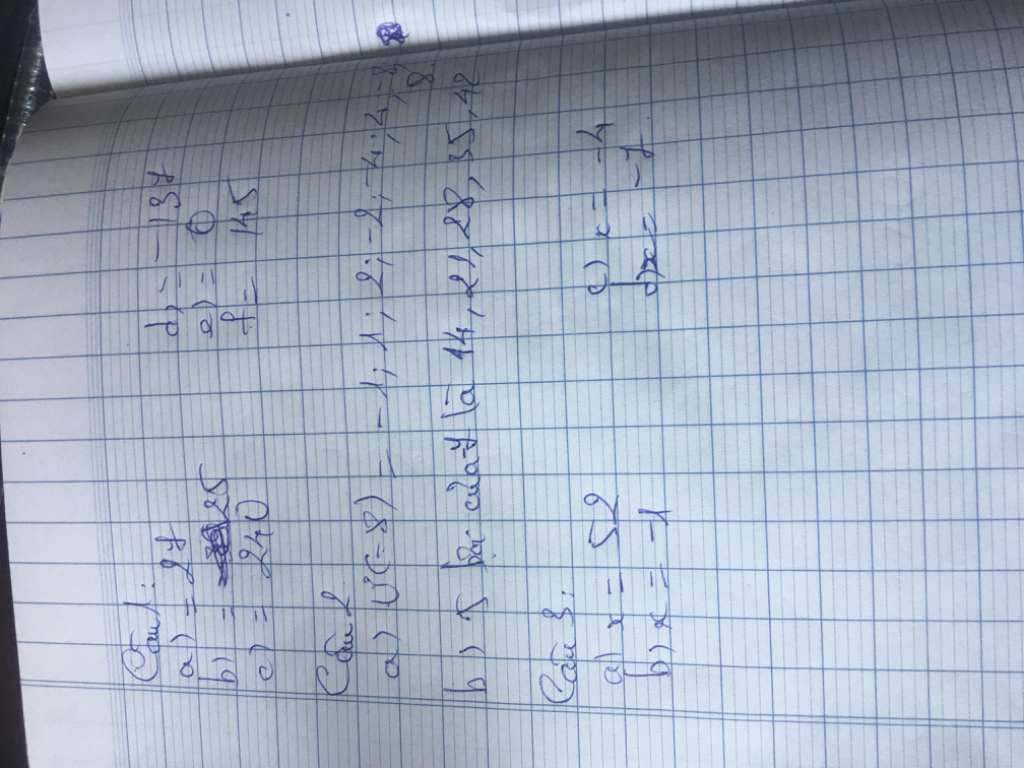 Câu 1:
a) = 27 d) = -137
b) = 25 e) = 0
c) = 240 f = 145
Câu 2
a) Ư(-8) = -1; 1; 2; -2; -4; 4; -8;
8
b) 5 bội của -7 là 14, 21, 28, 35, 42
Câu 3:
a) x = 52 c) x = -4
b) x = -1 d) x = -7